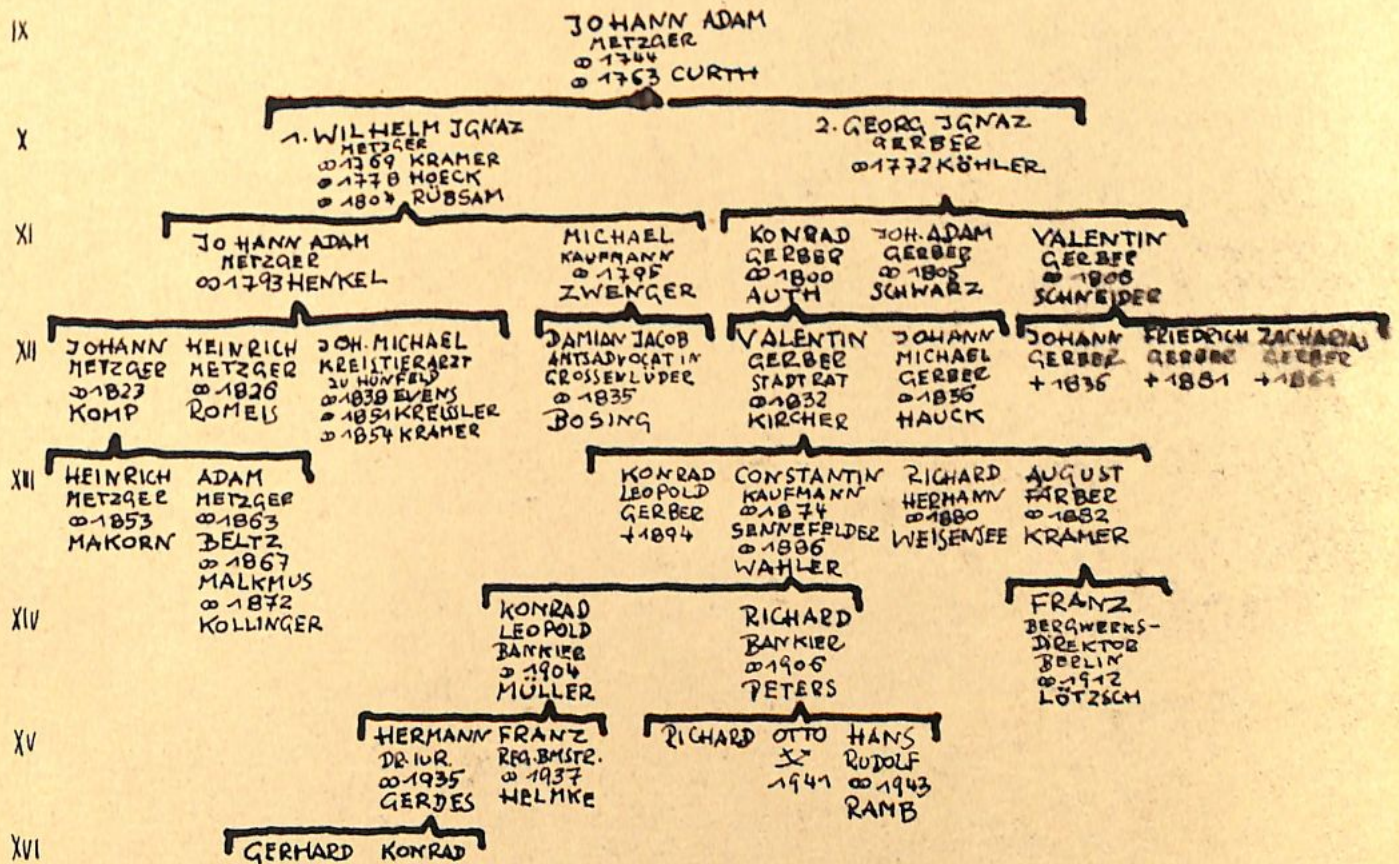 IX
JOHANN ADAM
METZGER
∞ 1744
∞ 1763 CURTH
X
1. WILHELM IGNAZ
METZGER
∞ 1769 KRAMER
∞ 1778 HOECK
∞ RÜBSAM
2. GEORG IGNAZ
GERBER
∞ 1772 KÖHLER
XI
JOHANN ADAM
METZGER
∞ 1793 HENKEL
MICHAEL
KAUFMANN
∞ 1795
ZWENGER
KONRAD
GERBER
∞ 1800
AUTH
JOH. ADAM
GERBER
∞ 1805
SCHWARZ
VALENTIN
GERBER
∞ 1808
SCHNEIDER
XII
JOHANN
METZGER
∞ 1823
KOMP
HEINRICH
METZGER
∞ 1826
ROMEIS
JOH. MICHAEL
KREISTIERARZT
ZU HÜNFELD
∞ 1838 EVENS
∞ 1851 KREISLER
∞ 1854 KRAMER
DAMIAN JACOB
AMTSADVOCAT IN
GROSSENLÜDER
∞ 1835
BOSING
VALENTIN
GERBER
STADTRAT
∞ 1832
KIRCHER
JOHANN
MICHAEL
GERBER
∞ 1836
HAUCK
JOHANN
GERBER
+ 1836
FRIEDRICH
GERBER
+ 1881
ZACHARIAS
GERBER
+ 1861
XIII
HEINRICH
METZGER
∞ 1853
MAKORN
ADAM
METZGER
∞ 1863
BELTZ
∞ 1867
MALKMUS
∞ 1872
KOLLINGER
KONRAD
LEOPOLD
GERBER
+ 1894
CONSTANTIN
KAUFMANN
∞ 1874
SENNEFELDER
∞ 1886
WAHLER
RICHARD
HERMANN
∞ 1880
WEISENSEE
AUGUST
FÄRBER
∞ 1882
KRAMER
XIV
KONRAD
LEOPOLD
BANKIER
∞ 1904
MÜLLER
RICHARD
BANKIER
∞ 1906
PETERS
FRANZ
BERGWERKS-
DIREKTOR
BERLIN
∞ 1912
LÖTZSCH
XV
HERMANN
DR. IUR.
∞ 1935
GERDES
FRANZ
REG. BMSTR.
∞ 1937
HELMKE
RICHARD
OTTO
⚔
1941
HANS
RUDOLF
∞ 1943
RAMB
XVI
GERHARD
KONRAD